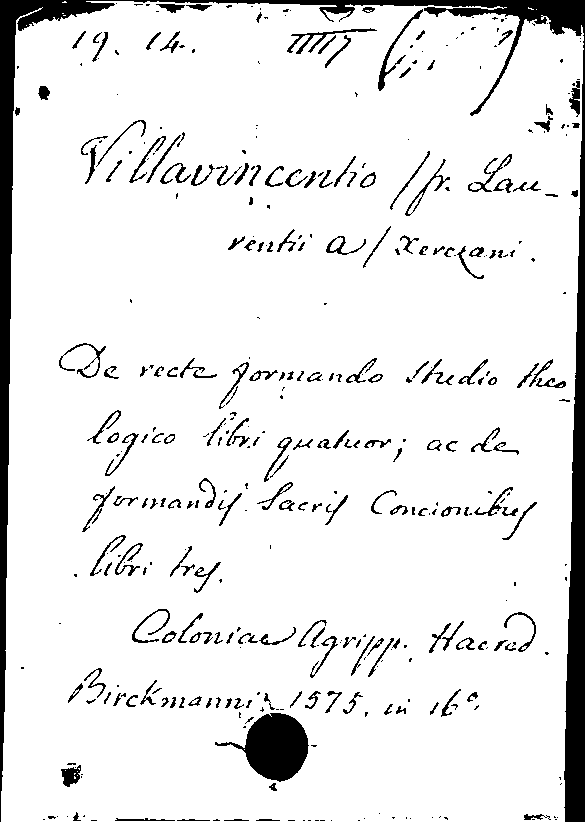 19. 14.
Villavincentio /fr. Lau-
rentii a/ Xerezani.
De recte formando studio theo-
logico libri quatuor; ac de
formandis Sacris Concionibus
libri tres.
Coloniae Agripp. Haered.
Birckmanni 1575. in 16°.